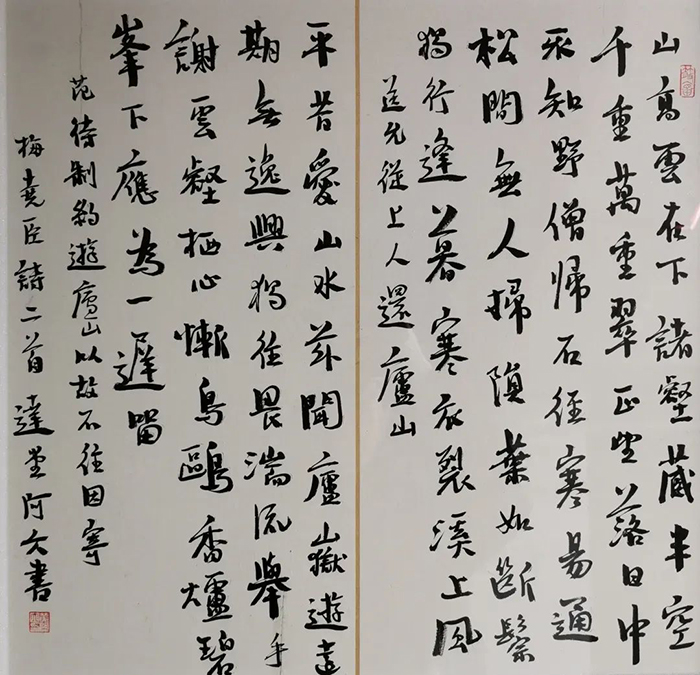 山高雲在下諸壑藏半空
千重萬重翠正望落日中
永知野僧歸石徑寒易通
松間無人掃隕葉如斷鬃
獨行逢暮寒衣裂溪上風
送允從上人還廬山
平昔愛山水茲聞廬嶽遊遠
期無逸興獨往畏湍流舉手
謝雲壑栖心慚鳥鷗香爐碧
峯下應為一遲留
范待制約遊廬山以故不往因寄
梅堯臣詩二首達阿書